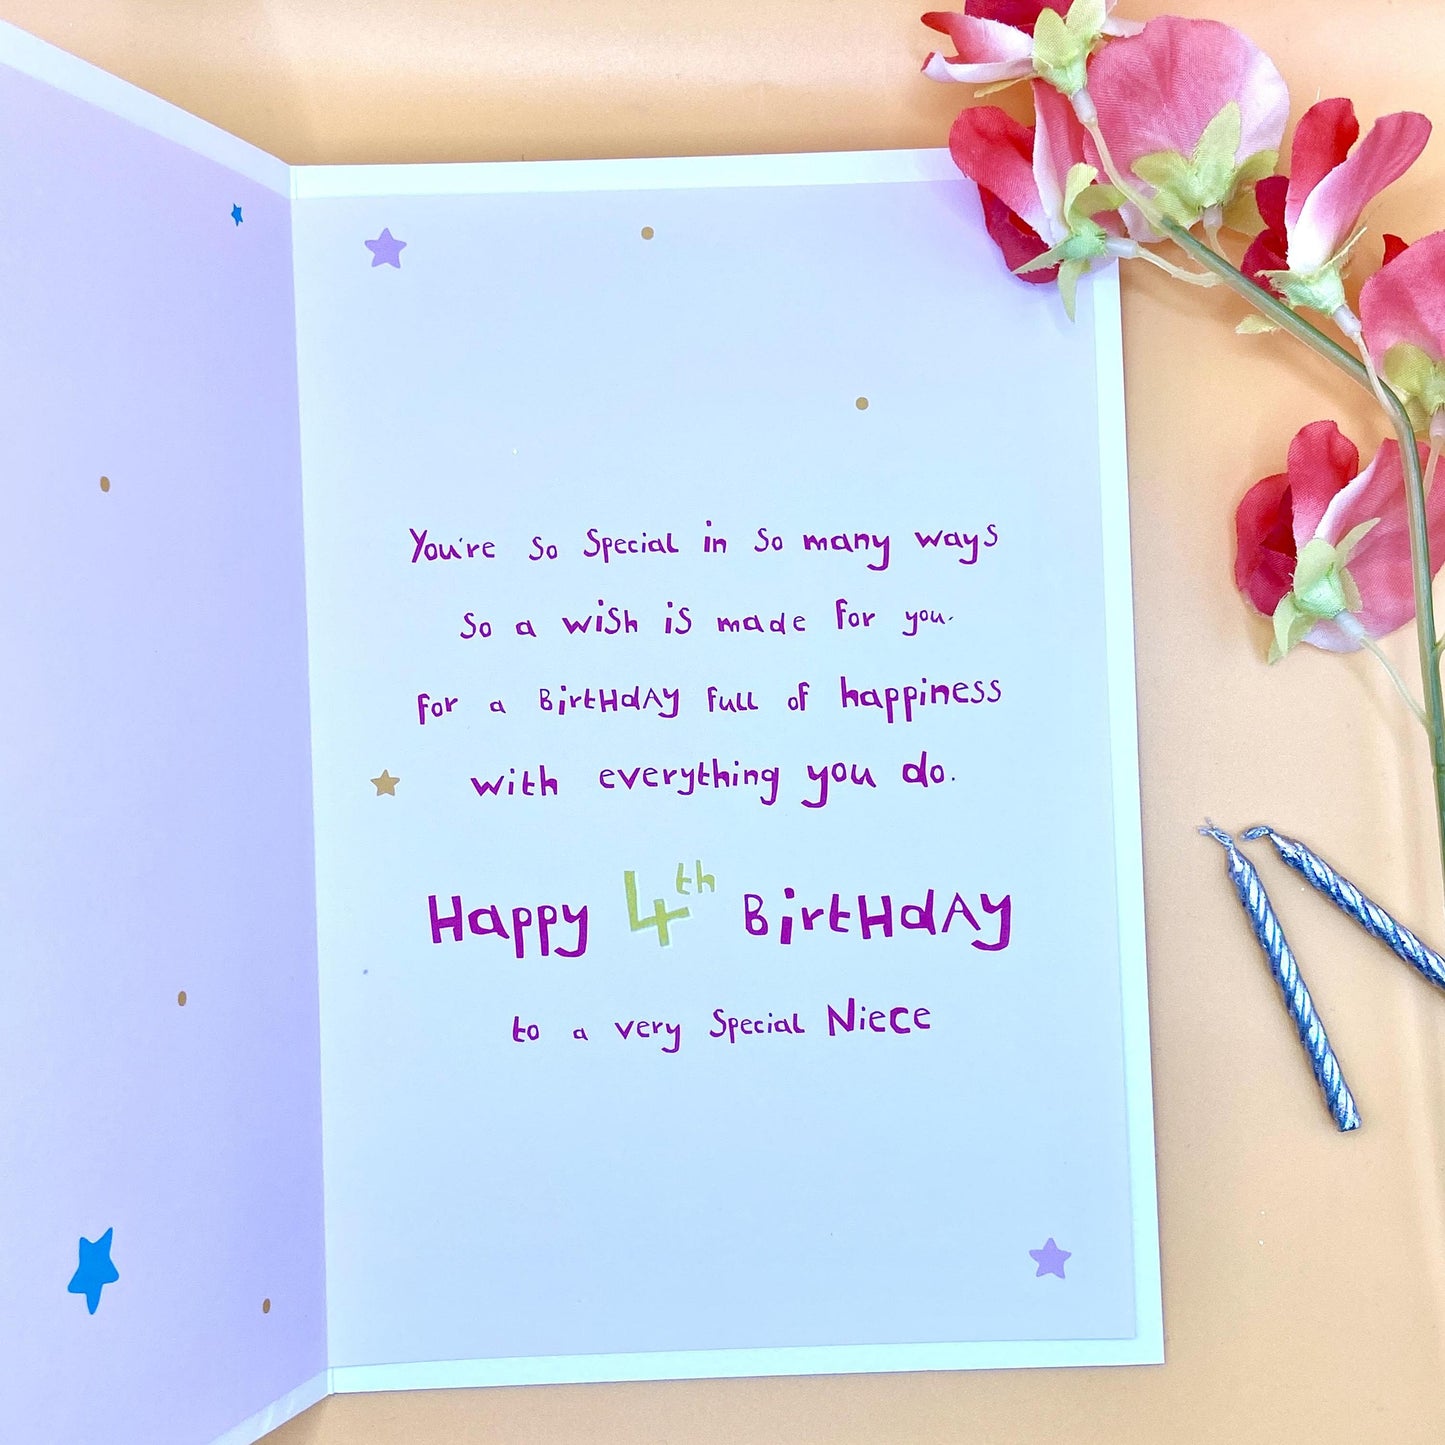 You're so special in so many ways
So a wish is made for you.
For a BirtHdAy full of happiness
with everything you do.
Happy 4th BirtHdAy
to a very special NiECE